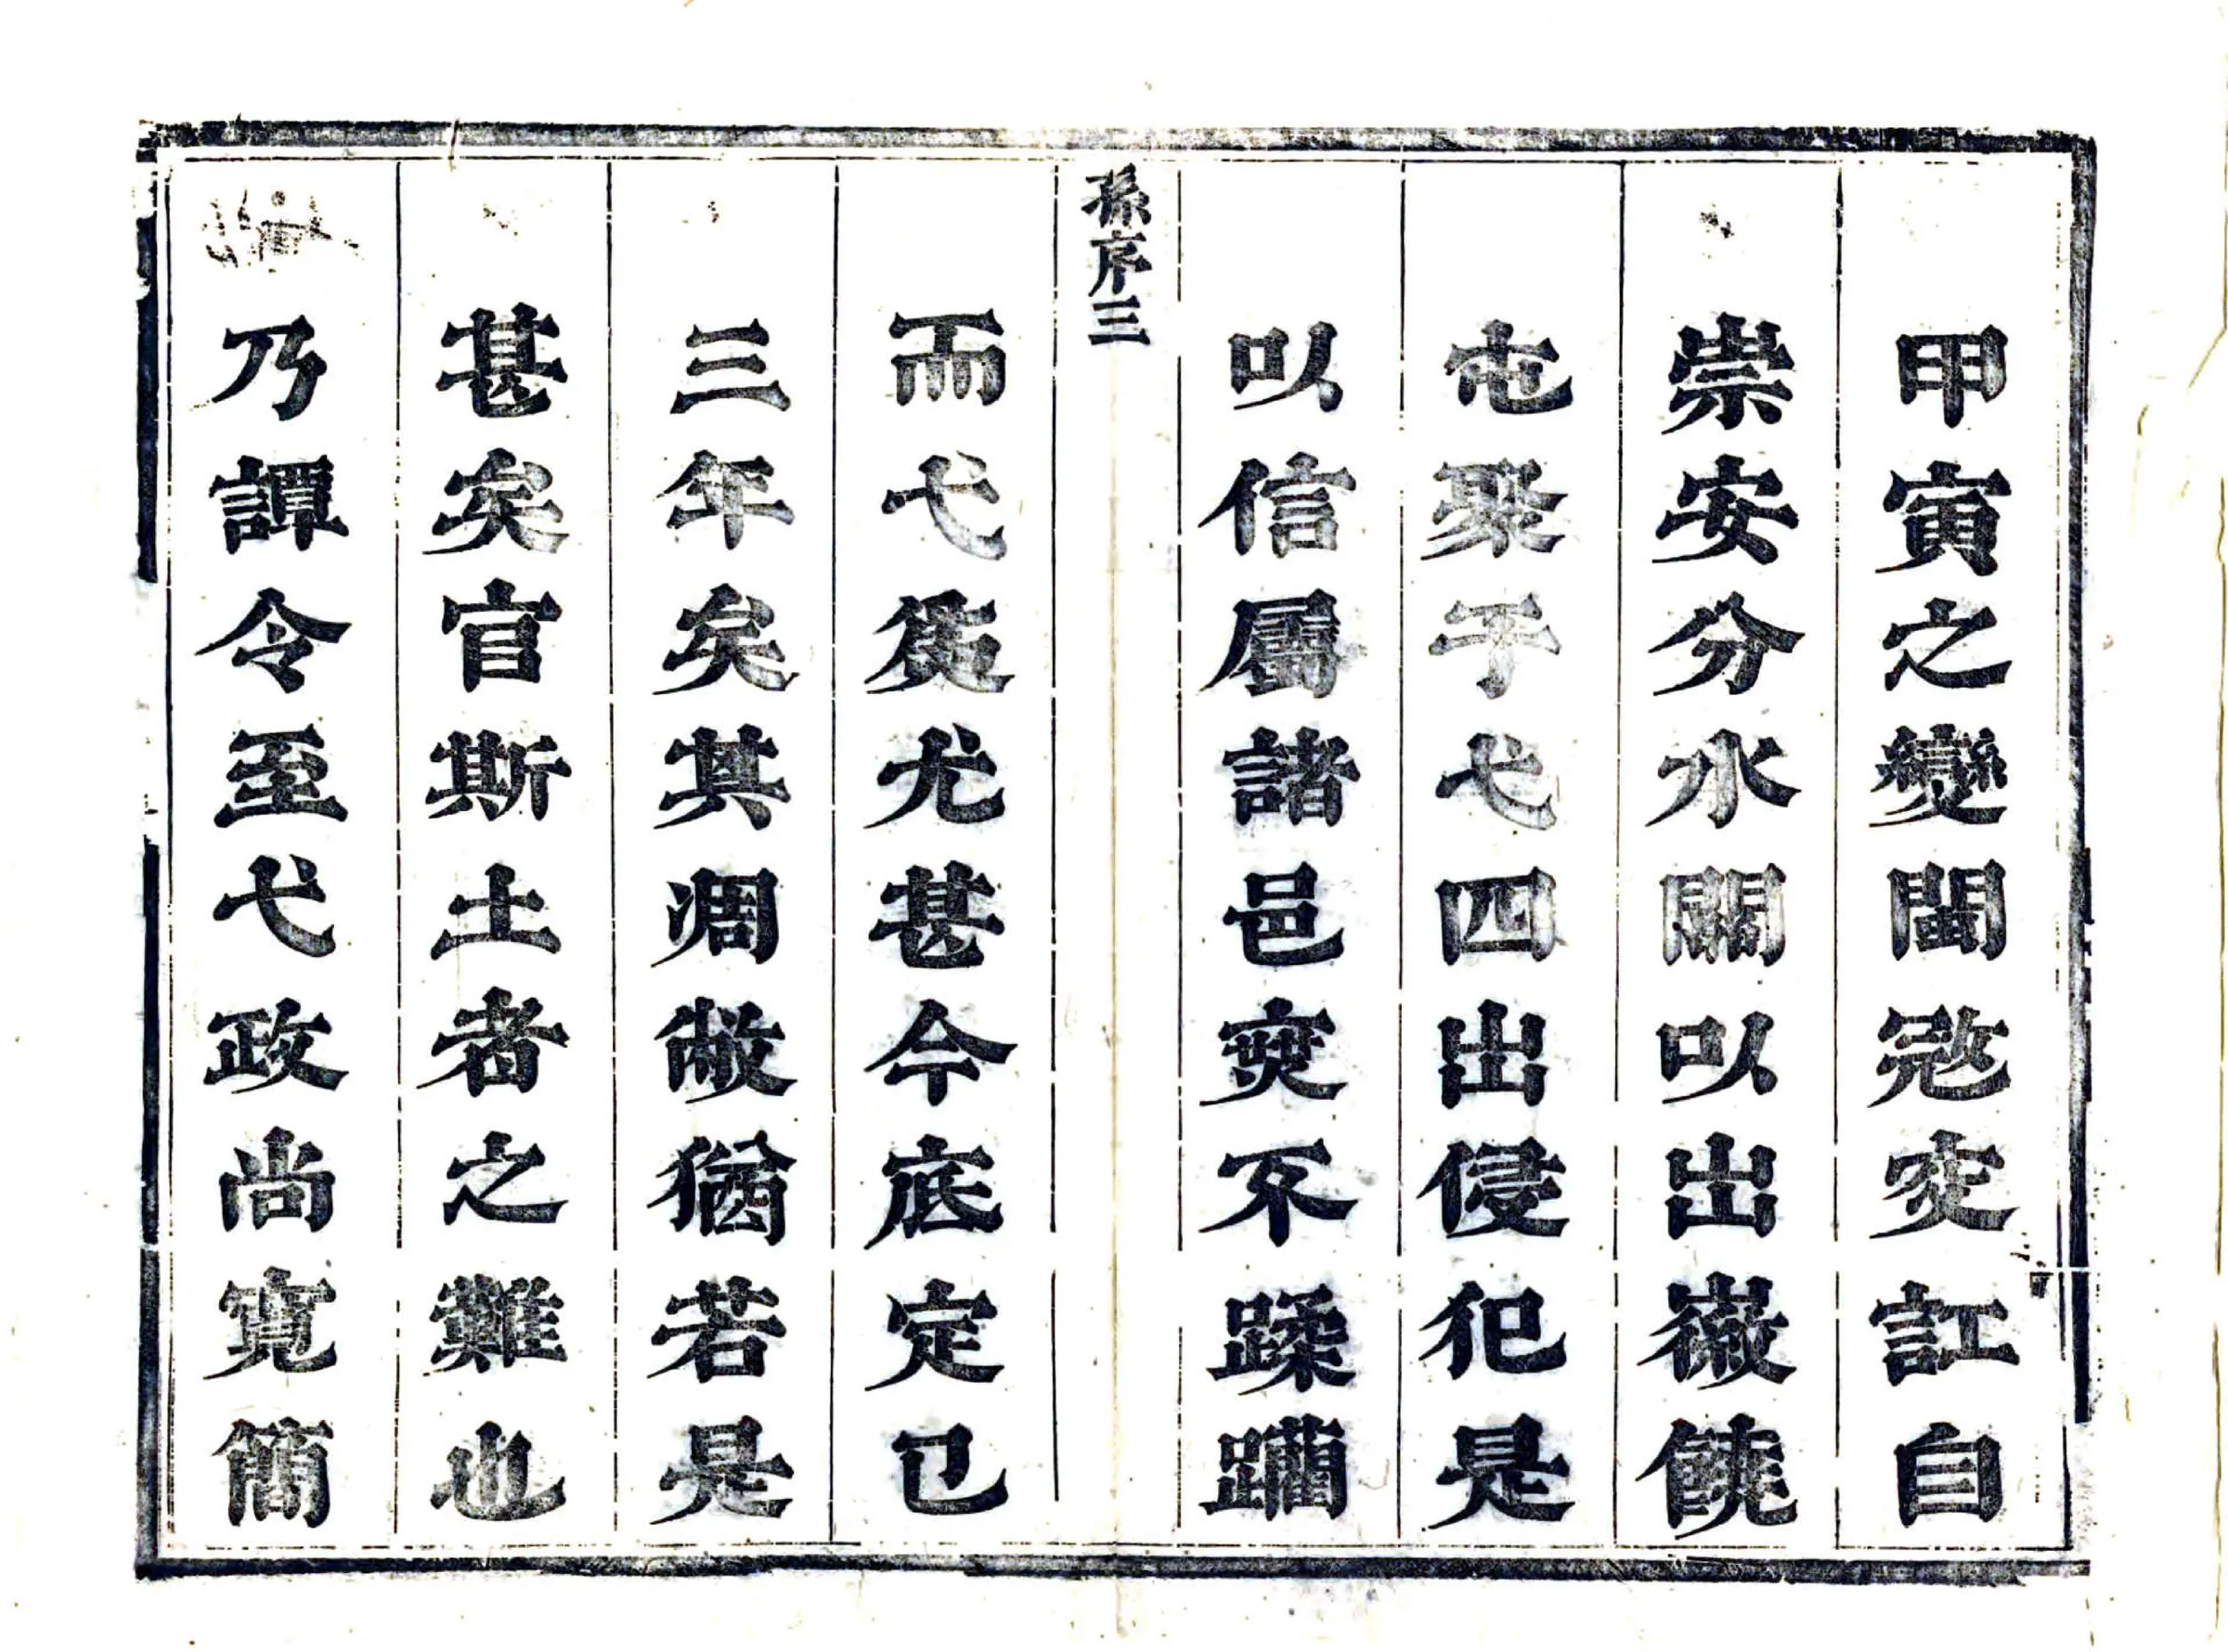 甲寅之變閩寇突訌自
崇安分水關以出徽饒
屯聚于弋四出侵犯是
以信屬諸邑莫不蹂躪
孫序三
而弋爲尤甚今底定已
三年矣其凋敝猶若是
甚矣官斯土者之難也
乃譚令至弋政尚寬簡